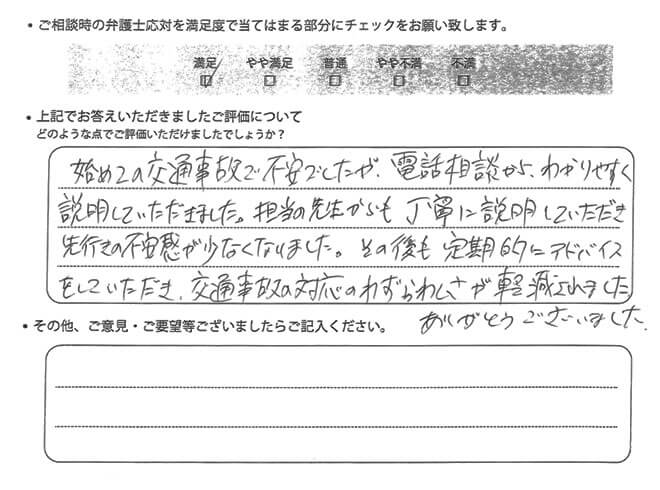 ・ご相談時の弁護士応対を満足度で当てはまる部分にチェックをお願い致します。
満足 やや満足 普通 やや不満 不満
・上記でお答えいただきましたご評価について
どのような点でご評価いただけましたでしょうか？
始めての交通事故で不安でしたが、電話相談から、わかりやすく
説明していただきました。担当の先生からも丁寧に説明していただき
先行きの不安感が少なくなりました。その後も定期的にアドバイス
をしていただき、交通事故の対応のわずらわしさが軽減されました
ありがとうございました。
・その他、ご意見・ご要望等ございましたらご記入ください。